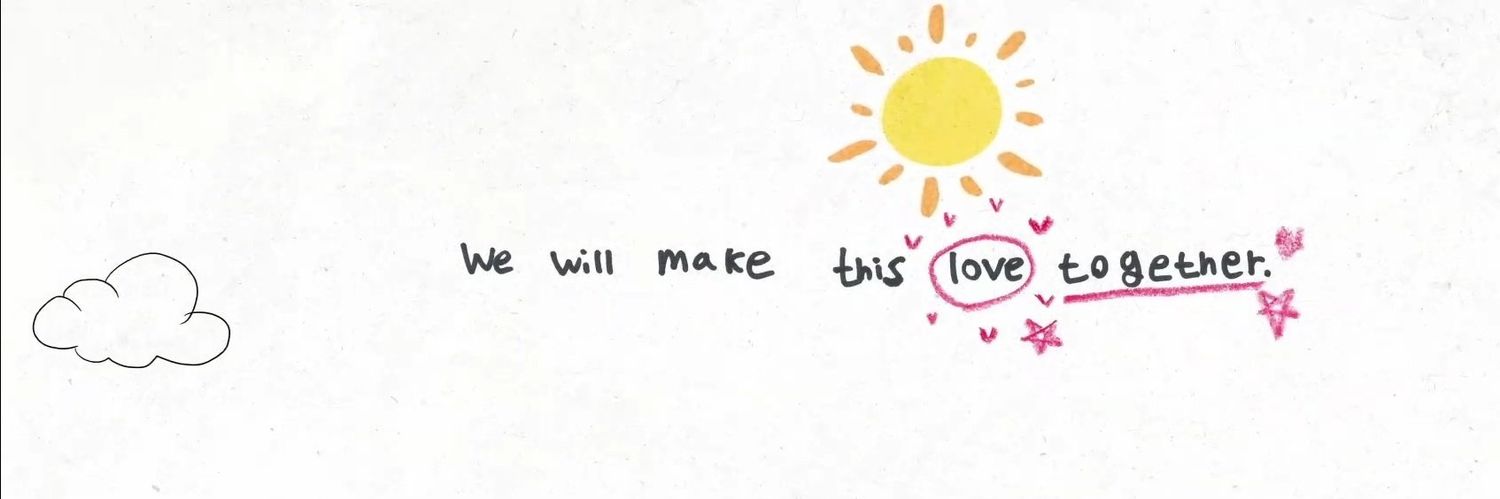 We will make this love together.